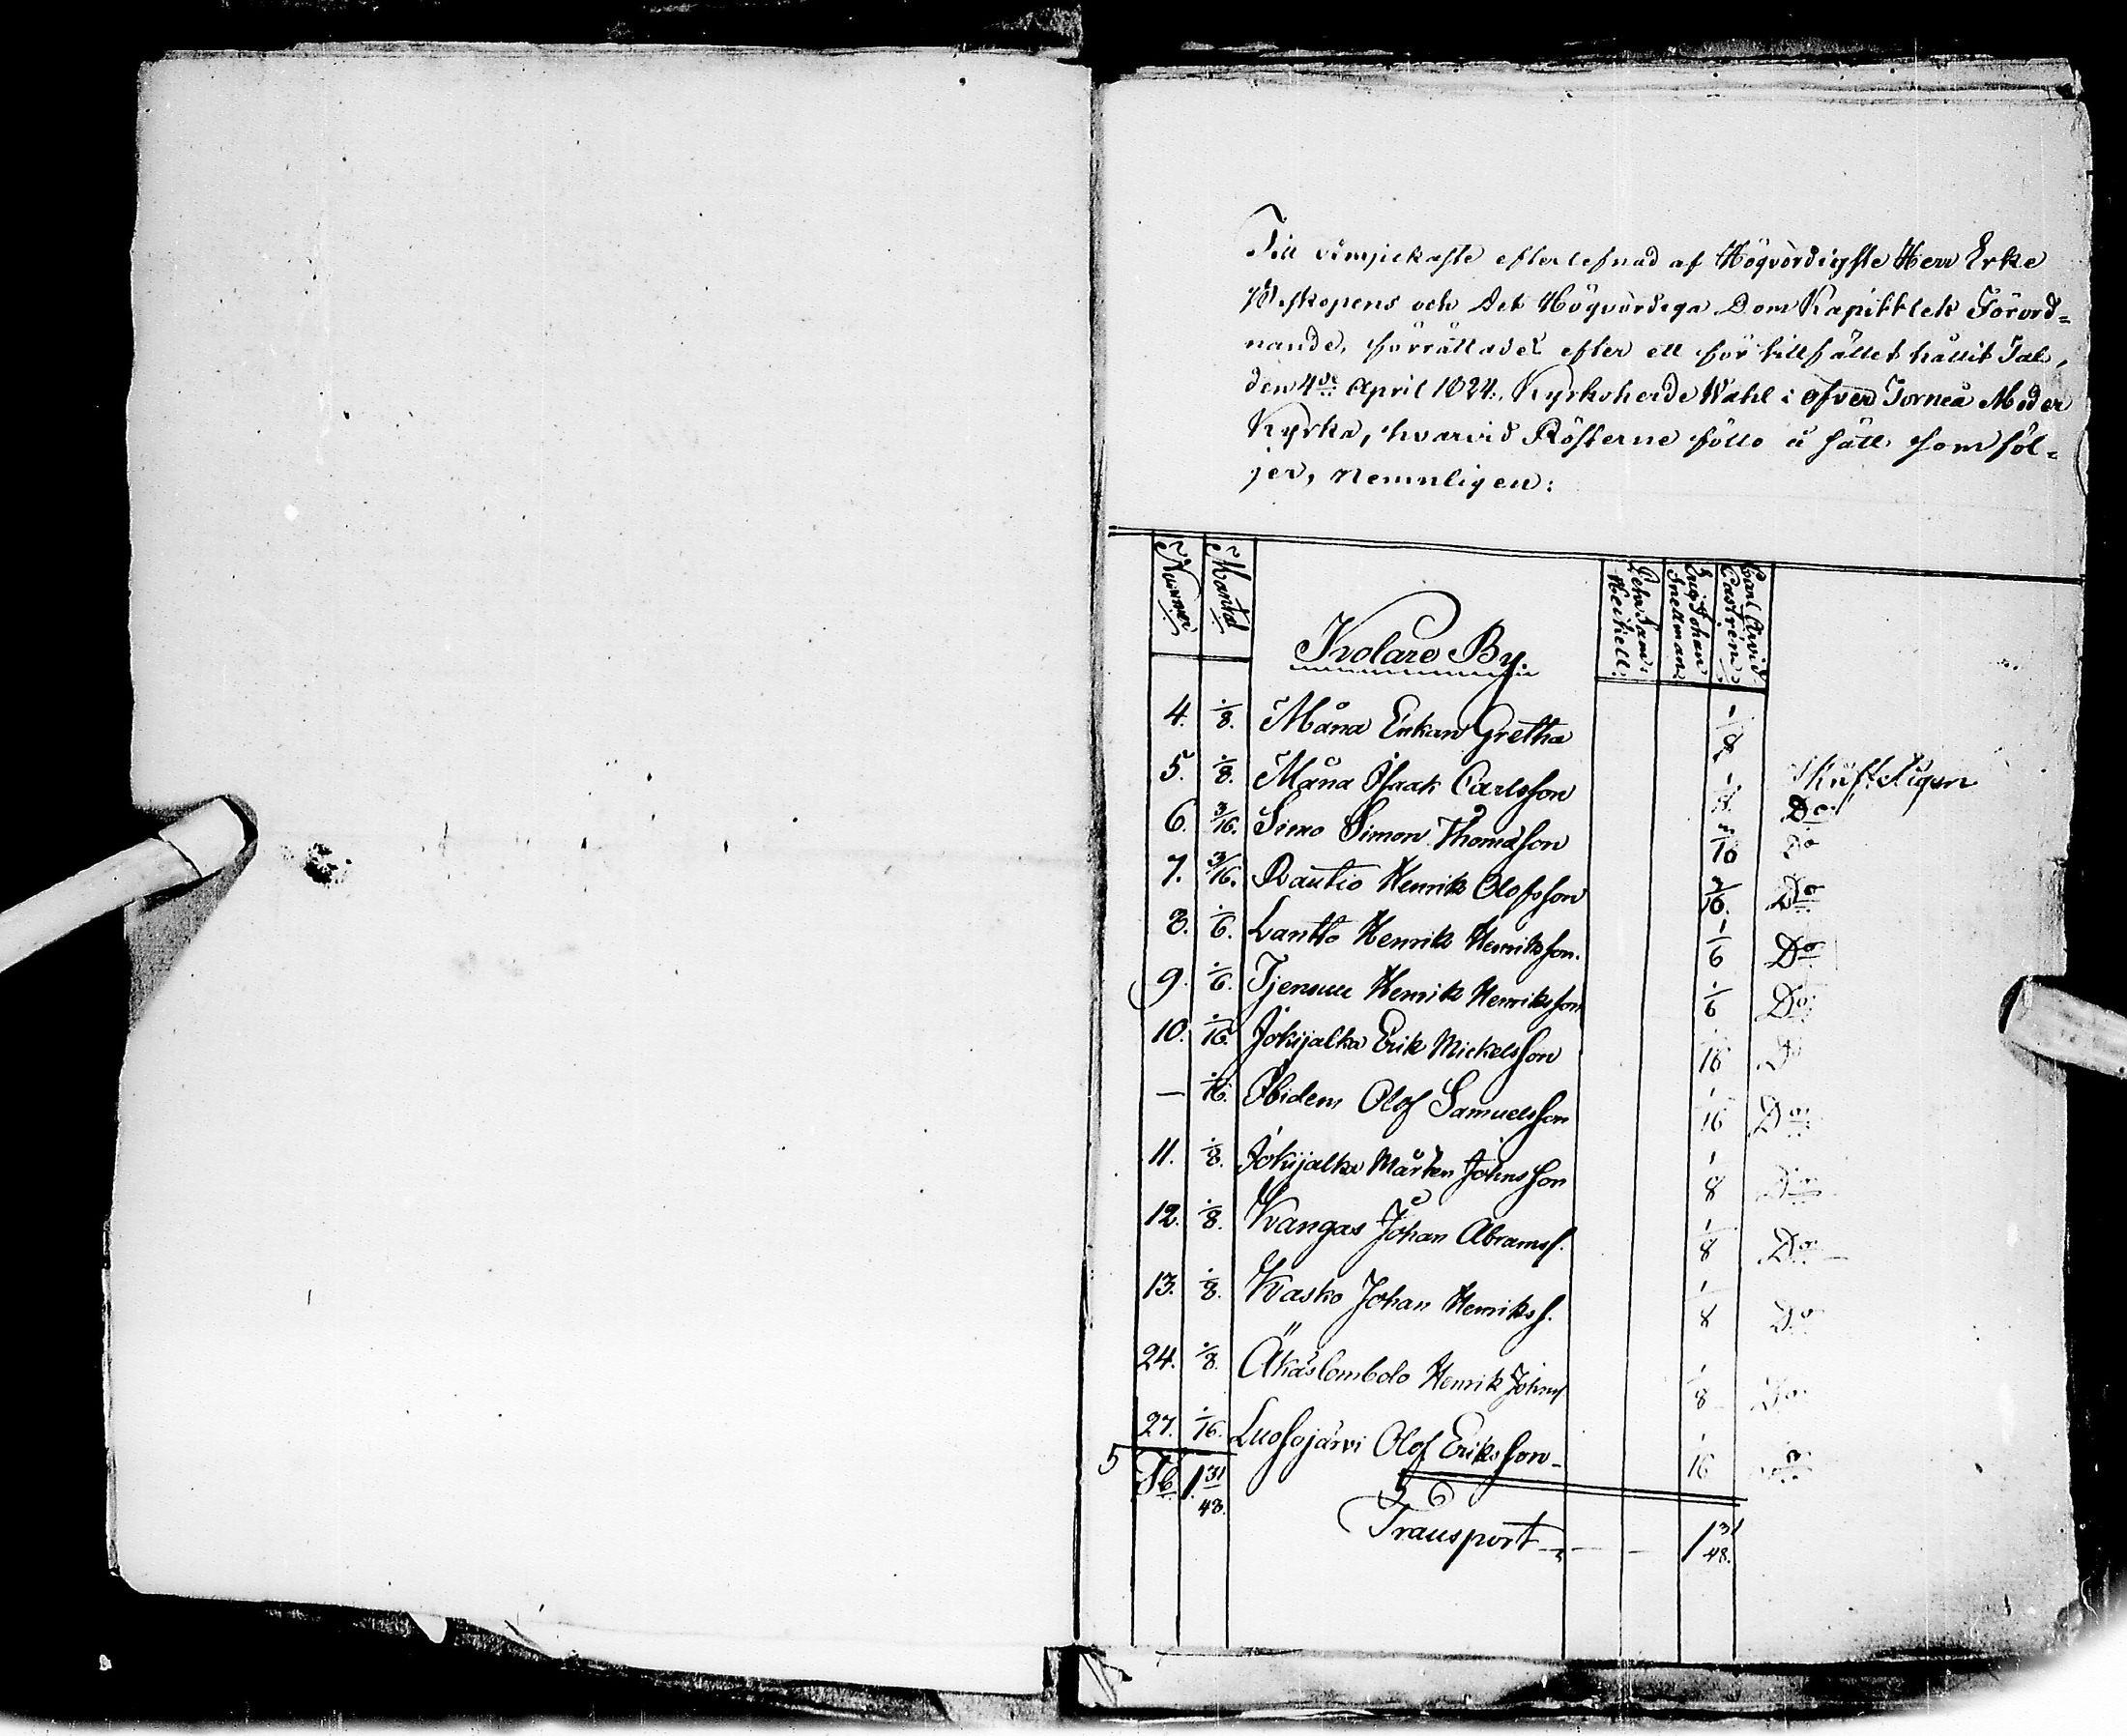 Till ödmjukaste efterlefnad af Högvördigste Herr Erke
Biskopens och Det Högvördiga Dom Kapittlets Förord=
nande, förrättades efter ett för tillfället hållit Tal,
den 4de April 1824. Kyrkoherde Wahl i Öfver Torneå Moder
Kyrka, hvarvid Rösterne föllo å sätt som föl=
jer, nemnligen:
Nummer Mantal Kolare By. Pehr Sam: Heikell: Eric Johan Snellman Carl Arvid Castrén
4. 1/8. Måna Enkan Gretha 1/8
5. 1/8. Måna Isaak Carlsson 1/8. Skriftligen
6. 3/16. Simo Simon Thomasson 3/16 Do
7. 3/16. Rautio Henrik Olofsson 3/16. Do
8. 1/6. Lantto Henrik Henriksson. 1/6 Do
9. 1/6. Tjensuu Henrik Henriksson 1/6 Do
10. 1/16. Jokijalka Erik Mickelsson 1/16 Do
— 1/16. Ibidem Olof Samuelsson 1/16 Do
11. 1/8. Jokijalka Mårten Johnsson 1/8 Do
12. 1/8. Kangas Johan Abramss. 1/8 Do
13. 1/8. Kasko Johan Henrikss. 1/8 Do
24. 1/8. Äkäslombolo Henrik Johnss 1/8 Do
27. 1/16. Luosojärvi Olof Eriksson 1/16 Do
5 1 31/48.
Transport 1 31/48.